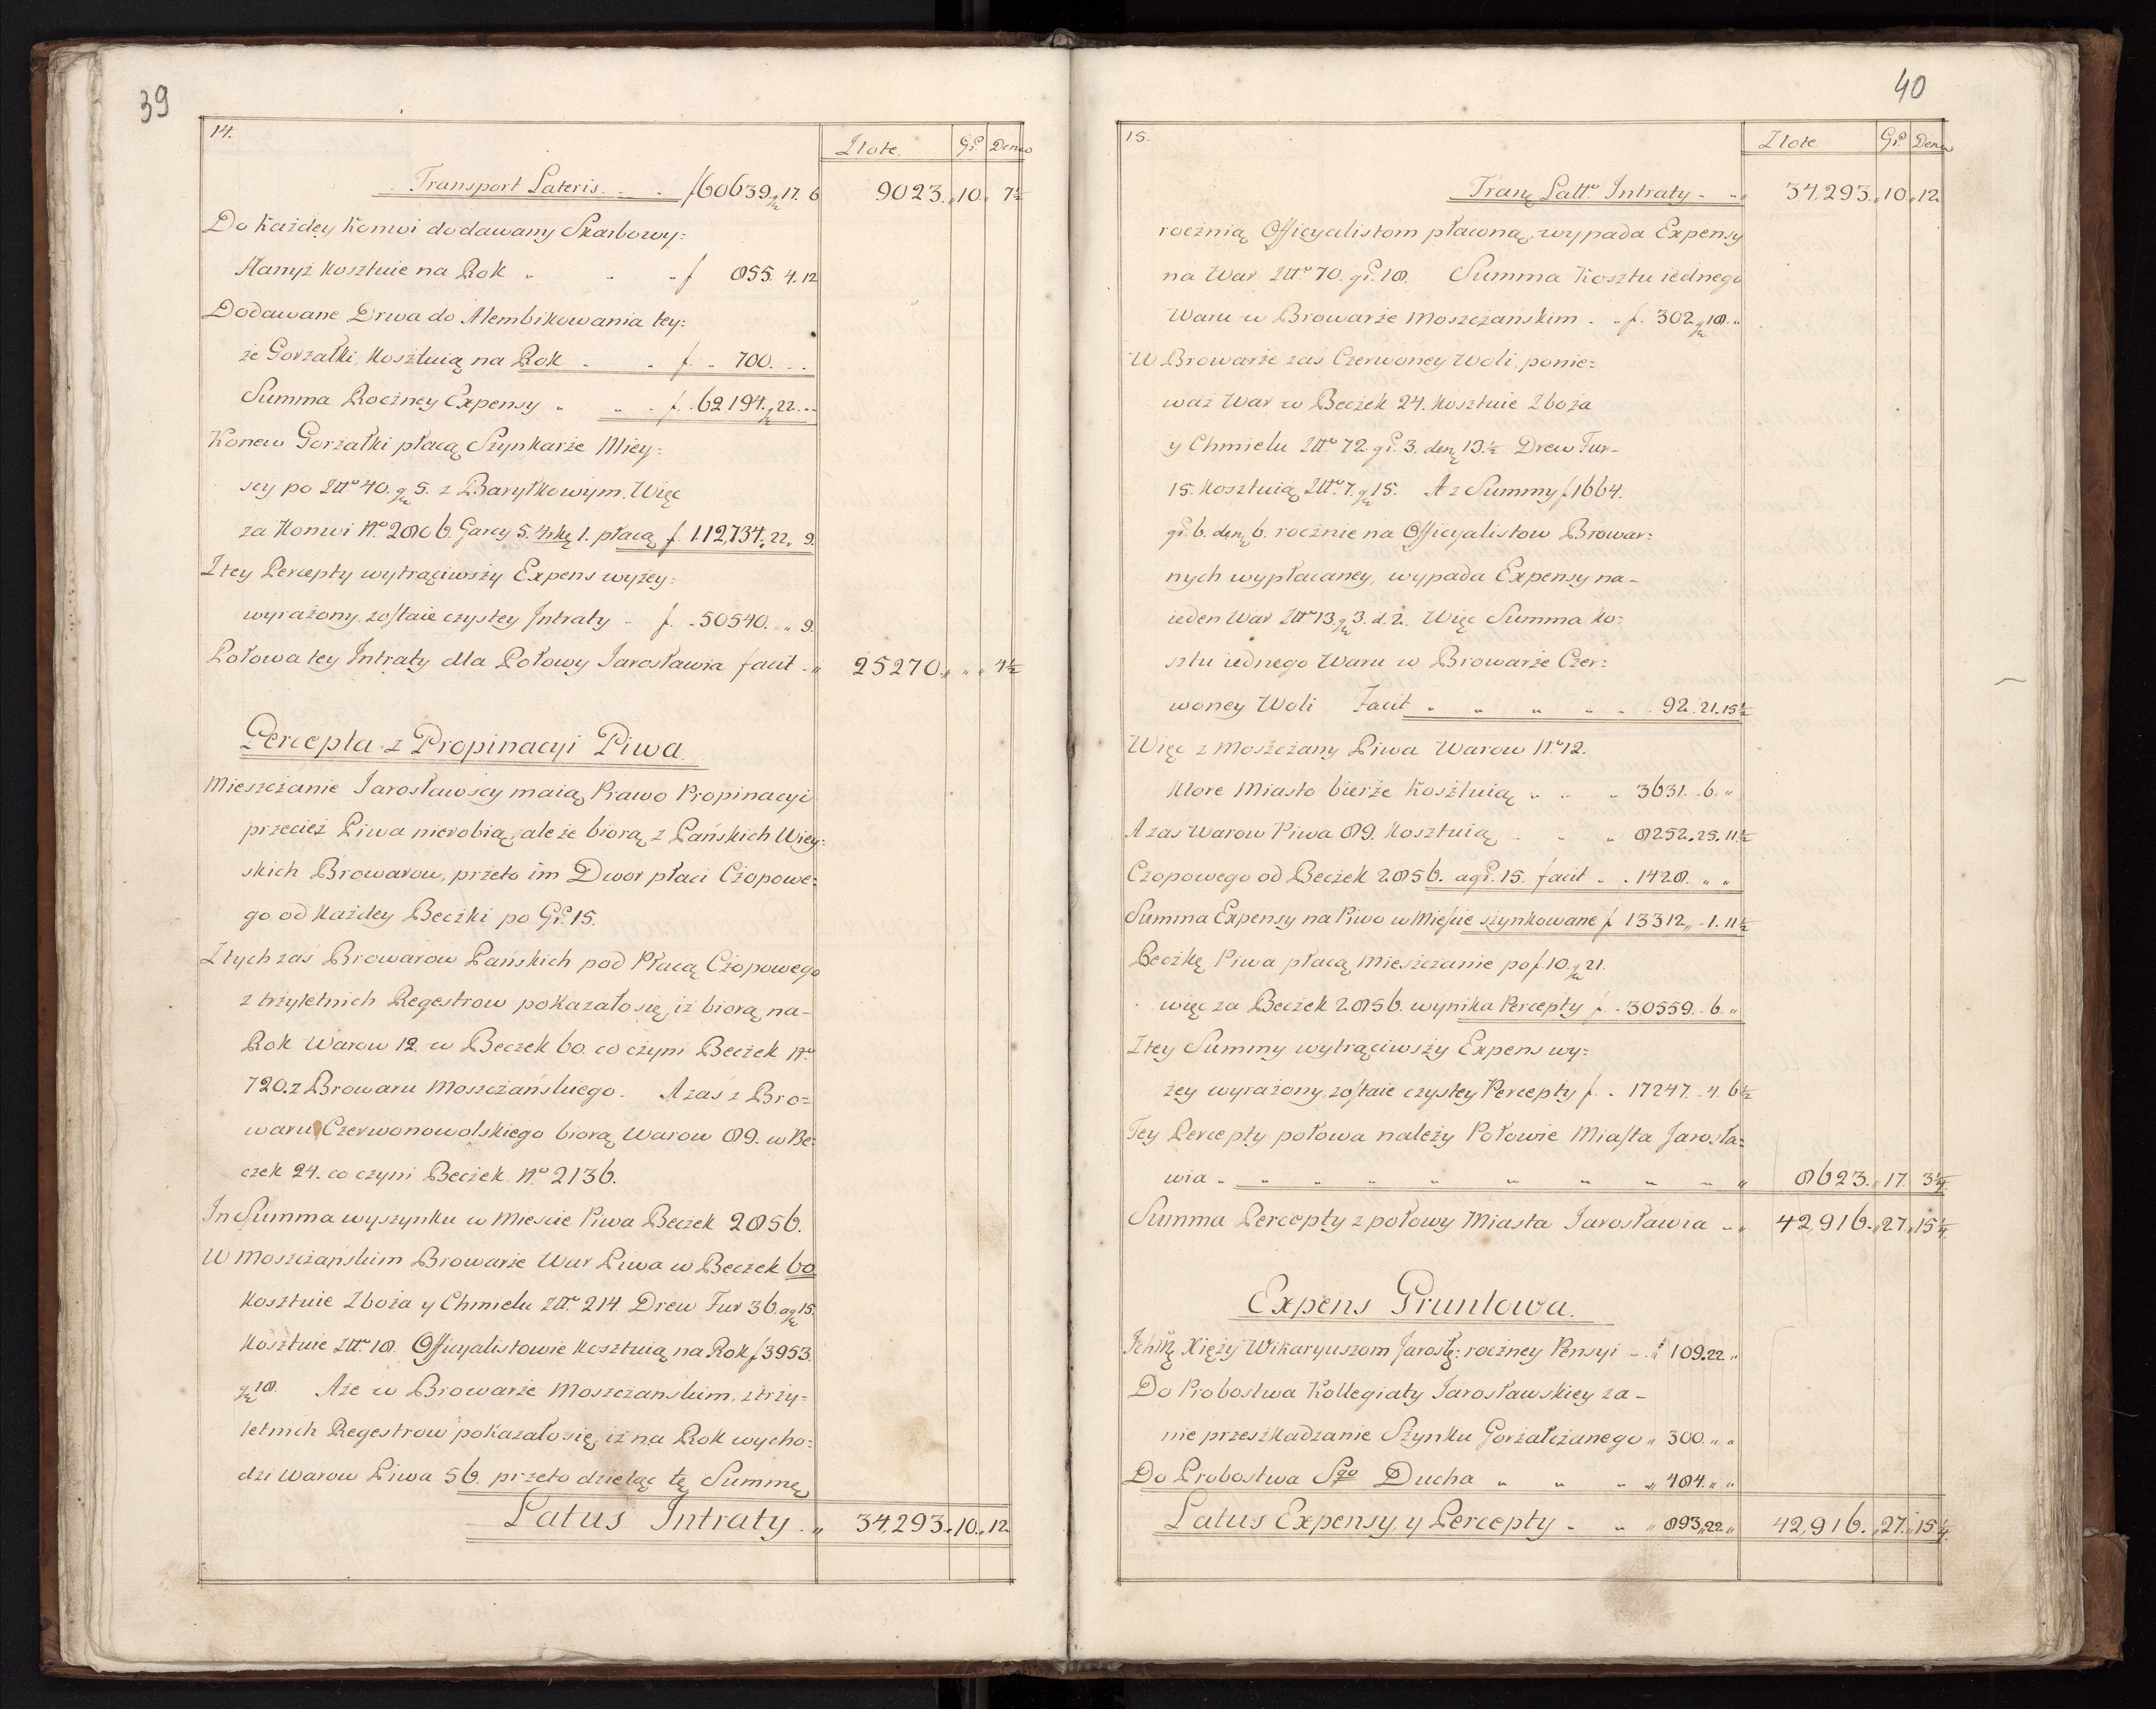 39
14.
Złote. Gr. Dena
Transport Lateris. f 60639. gr 17. 6 9023. „ 10. „ 7½
Do każdey konwi dodawany Skarbowy=
Hanyż kosztuie na Rok „ „ „ f 855. 4. 12
Dodawane Drwa do Alembikowania tey=
że Gorzałki, kosztuią na Rok „ „ f „ 700. „ „
Summa Roczney Expensy „ „ „ f. 62194. gr 22. „
Konew Gorzałki płacą Szynkarze Miey=
scy po Złł 40. gr 5. z Baryłkowym. Więc
za Konwi Nro 2806. Garcy 5. 4rkę 1. płacą f. 112,734. „ 22. „ 9.
Z tey Percepty wytrąciwszy Expens wyżey=
wyrażony, zostaie czystey Intraty „ f. „ 50540. „ „ 9.
Połowa tey Intraty dla Połowy Jarosławia facit „ 25270. „ „ „ 4½
Percepta z Propinacyi Piwa.
Mieszczanie Jarosławscy maią Prawo Propinacyi
przecież Piwa nierobią, ale że biorą z Pańskich Wiey=
skich Browarow, przeto im Dwor płaci Czopowe=
go od każdey Beczki po Gr. 15.
Z tych zaś Browarow Pańskich pod Płacą Czopowego
z trzyletnich Regestrow pokazało się, iż biorą na-
Rok Warow 12. w Beczek 60. co czyni Beczek Nro
720. z Browaru Moszczańskiego. A zaś z Bro=
waru Czerwonowolskiego biorą Warow 89. w Be=
czek 24. co czyni Beczek Nro 2136.
In Summa wyszynku w Miescie Piwa Beczek 2856.
W Moszczańskim Browarze War Piwa w Beczek 60
kosztuie Zboża y Chmielu Złł. 214. Drew Fur 36. a gr 15.
kosztuie Złł. 18. Officyalistowie kosztuią na Rok f 3953.
gr 18. A że w Browarze Moszczanskim, z trzy=
letnich Regestrow pokazało się, iż na Rok wycho=
dzi Warow Piwa 56. przeto dzieląc tę Summę
Latus Intraty „ 34,293. „ 10. „ 12
40
15.
Złote Gr. Dena
Tranę Latt. Intraty „ „ 34,293. „ 10. „ 12
rocznią Officyalistom płaconą, wypada Expensy
na War Złł. 70. gr. 18. Summa Kosztu iednego
Waru w Browarze Moszczanskim „ „ f. 302. gr 18. „
W Browarze zaś Czerwoney Woli, ponie=
waż War w Beczek 24. kosztuie Zboża
y Chmielu Złł. 72. gr. 3. denę 13½ Drew Fur-
15. kosztuią Złł. 7. gr 15. A z Summy f 1664.
gr. 6. denę 6. rocznie na Officyalistow Browar=
nych wypłacaney, wypada Expensy na-
ieden War Złł 13. gr 3. d. 2. Więc Summa Ko=
sztu iednego Waru w Browarze Czer=
woney Woli Facit „ „ „ „ „ 92. 21. 15½
Więc z Moszczany Piwa Warow Nro 12.
ktore Miasto bierze kosztuią „ „ „ 3631. 6. „
A zaś Warow Piwa 89. kosztuią „ „ „ 8252. 25. 11½
Czopowego od Beczek 2856. a gr. 15. facit „ „ 1428. „ „
Summa Expensy na Piwo w Mieście szynkowane f 13312. „ 1. 11½
Beczkę Piwa płacą Mieszczanie po f. 10. gr 21.
więc za Beczek 2856. wynika Percepty f. „ 30559. 6. „
Z tey Summy wytrąciwszy Expens wy=
żey wyrażony, zostaie czystey Percepty f. „ 17247. 4. 6½
Tey Percepty połowa należy Połowie Miasta Jarosła=
wia „ „ „ „ „ „ „ „ „ 8623. „ 17. 3¼
Summa Percepty z połowy Miasta Jarosławia „ „ 42,916. „ 27. „ 15¼
Expens Gruntowa.
Ichmę Xięży Wikaryuszom Jarosłę: roczney Pensyi „ f 109. 22 „
Do Probostwa Kollegiaty Jarosławskiey za-
nie przeszkadzanie Szynku Gorzałczanego „ 300. „ „
Do Probostwa Sgo Ducha „ „ „ „ 484. „ „
Latus Expensy, y Percepty „ „ „ 893. „ 22 „ 42,916. „ 27. „ 15¼